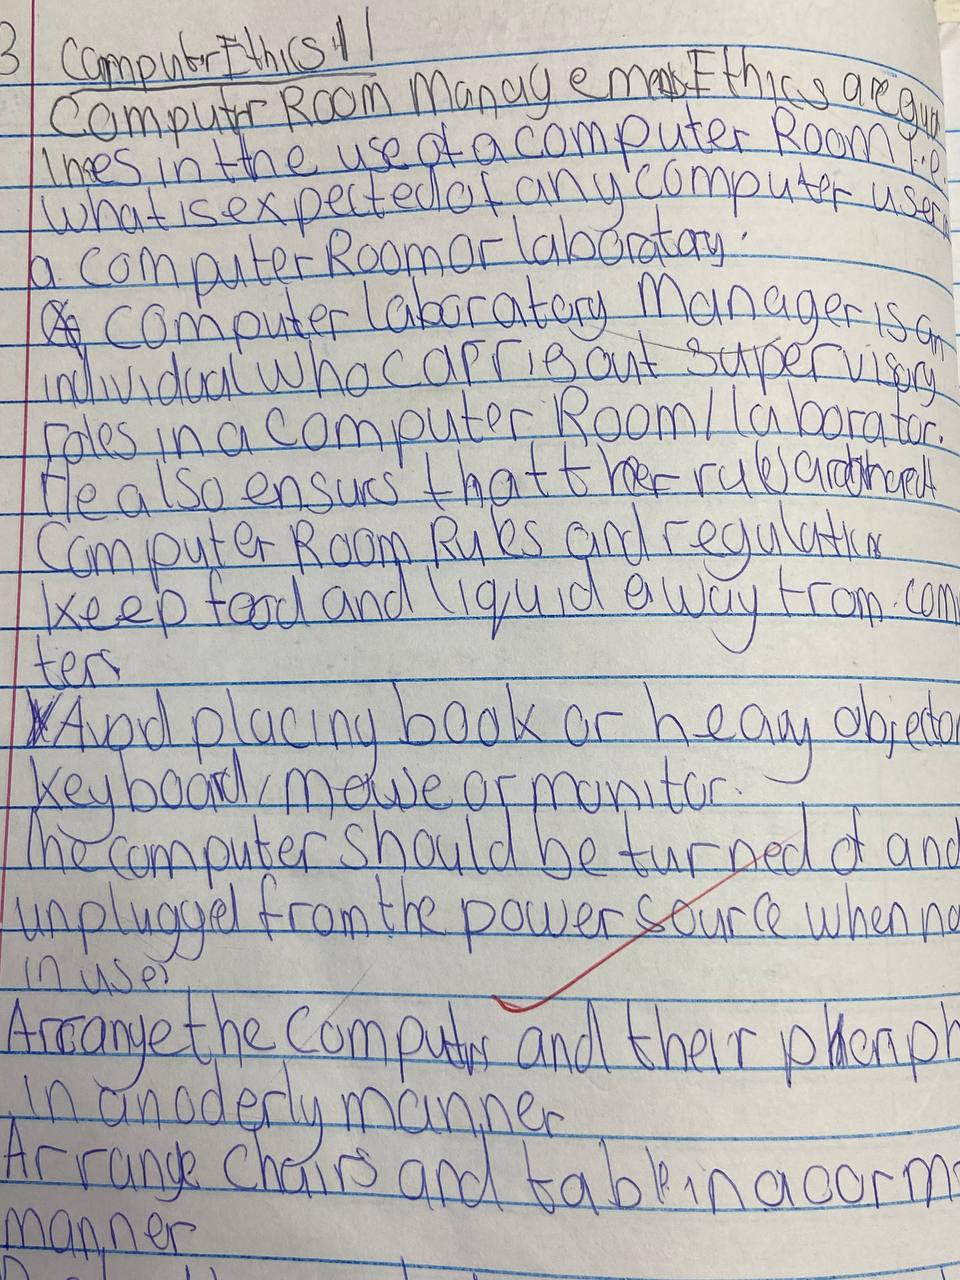 3 Computer Ethics
Computr Room Management Ethics are gui
lines in the use of a computer Room i.e
What is expected of any computer user
a. Computer Room or laboratory.
computer laboratory Manager is an
individual Who carries out supervisory
roles in a computer Room/laborator.
He also ensurs that
Computer Room Rules and regulation
keep food and liquid away from com
ters
Avod placing book or heavy object
Keyboard, mouse or monitor.
The computer should be turned of and
unplugged from the power source when no
in use
Arrange the Computrs and their
in an oderly manner
Arrange chairs and table in a
manner